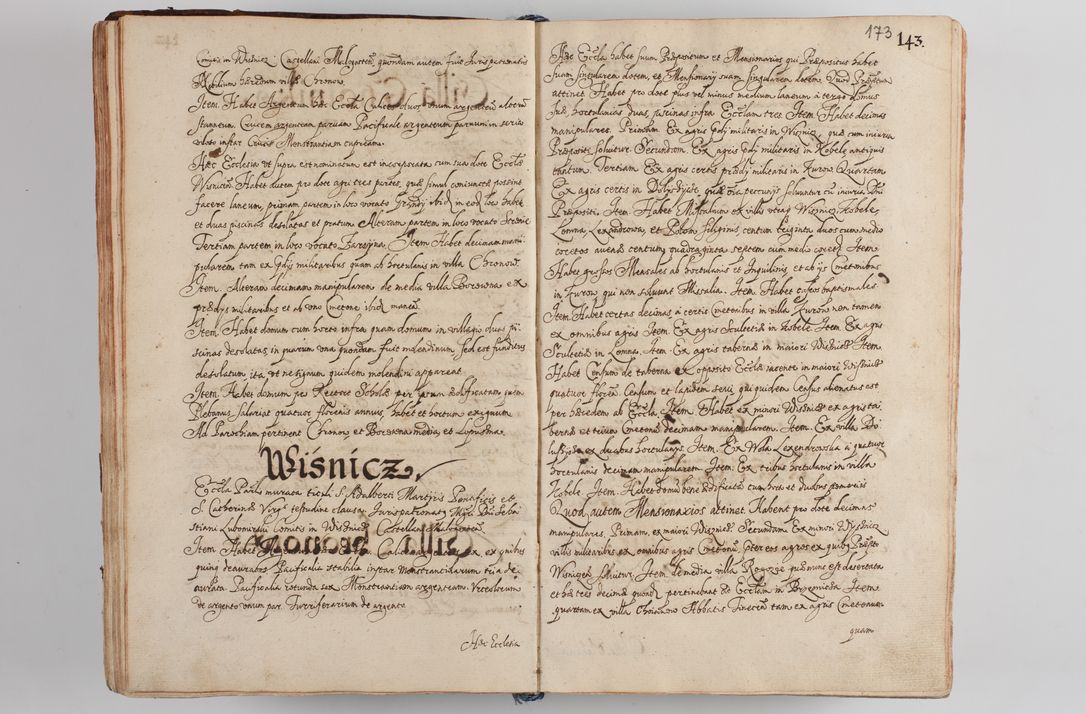 Comitis in Wisnicz Castellani Malogosten, quondam autem fuit Juris patronatus
Nobilium hæredum villæ Chronow.
Item. Habet Argentum hæc Eccla Calices duos, unum argenteum alterum
stanneum. Crucem argenteam parvam Pacificale argenteum parvum in serico
violo instar Crucis Monstrantiam cupream.
Hæc Ecclesia ut supra est nominatum est incorporata cum sua dote Ecclæ
Wisnicen. Habet autem pro dote agri tres partes, quæ simul coniunctæ possint
facere laneum, primam partem in loco vocato Grundy ibid in eod loco habet
et duas piscinas desolatas et pratum Alteram partem in loco vocato
Tertiam partem in loco vocato Item Habet decimam mani
pularem tam ex pdys militaribus quam ab hortulanis in villa Chronow.
Item. Alteram decimam manipularem de media villa Borowna ex
prædys militaribus et ab uno Cmetone ibid manen.
Item. Habet domum cum horto infra quam domum in villagio duas pi
scinas desolatas, in quarum una quondam fuit molendinum, sed est funditus
desolatum ita ut ne signum quidem molendini appareat.
Item. Habet domum pro Rectore Scholæ per ipsum ædificatam, quem
Plebanus salariat quatuor florenis annuis, habet et hortum exiguum
Ad Parochiam pertinent Chronow et Borowna media, et Lipnicza.
Wisnicz
Eccla Parlis murata tituli S. Adalberti Martyris Pontificis et
S. Catherinæ Virgs testudine clausa, Jurispatronatq Mgci Dni Seba
stiani Lubomirski Comitis in Wisnicz Castellani Malogosten.
Item Habet Calices ex quibus
quinq deauratos Pacificalia stabilia instar monstranciarum tria de
aurata Pacificalia rotunda sex Monstrantiam argenteam Urceolorum
de argento unum par Turriferarium de argento
Hæc Ecclesia
173
143.
Hæc Eccla habet suum Præpositum et Mensionarios qui Præpositus habet
suam singularem dotem, et Mensionarij suam singularem dotem. Quod Præpositum
attinet Habet pro dote plus vel minus medium laneum a tergo domus
suæ, hortulanios duas piscinas infra Ecclam tres. Item. Habet decimas
manipulares. Primam Ex agris pdy militaris in Wisnicz, quæ cum iniuria
Præpositi soluitur. Secundam. Ex agris pdy militaris in Kobele antiquis
tantum. Tertiam Ex agris certis prædy militaris in Kurow. Quartam
Ex agris certis in quæ oia pecunijs soluuntur cu iniuria Dni
Præpositi. Item. Habet Missalium ex villis utraq Wisnicz, Kobele,
Lomna, Lexandrowa, et Polom siliginis centum triginta duos cum medio
coretos auenæ centum quadraginta septem cum medio coretos Item
Habet grossos Mensales ab hortulanis et Inquilinis et ab ijs Cmetonibus
in Kurow qui non soluunt Missalia. Item. Habet caseos baptismales
Item. Habet certas decimas a certis Cmetonibus in villa Kurow non tamen
ex omnibus agris Item. Ex agris Sculteti in Kobele. Item. Ex agris
Sculteti in Lomna. Item. Ex agris tabernæ in maiori Wisnicz Item.
Habet Censum de taberna ex opposito Ecclæ iacente in maiori Wisnicz
quatuor floren. Censum et lapidem sevi, qui quidem Census alienatus est
per hæredem ab Eccla. Item. Habet ex minori Wisnicz ex agris ta
bernæ et trium Cmetonu decimam manipularem. Item. Ex villa
ex duabus hortulanys. Item. Ex Wola Lexandrowska a quatuor
hortulanis decimam manipularem Item. Ex tribus hortulanis in villa
Kobele. Item. Habet domu bene ædificata cum horto et duobus pomarijs
Quod autem Mensionarios attinet. Habent pro dote decimas
manipulares. Primam, ex maiori Wisnicz. Secundam. Ex minori Wisnicz
villis militaribus ex omnibus agris Cmetonu, præter eos agros ex quibq Præpto
Wisnicen soluitur. Item. de media villa quæ nunc est desertata
et hæ tres decimæ quond pertinebant de Ecclam in Brzeznicza. Item
quartam ex villa Abbatis Tinecen tam ex agris Cmetonum
quam